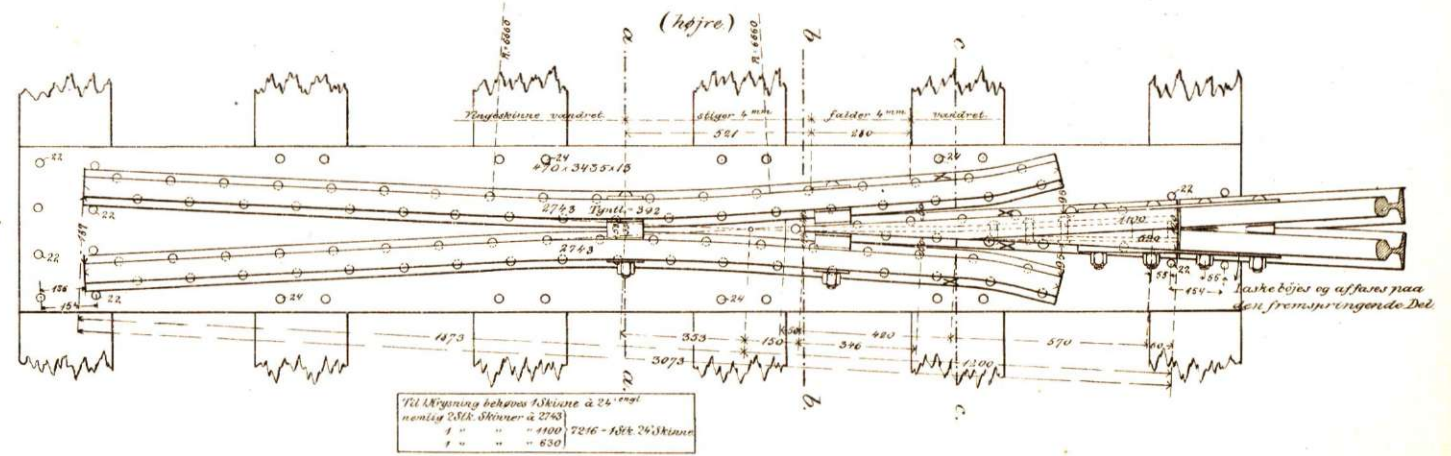 (højre)
R=6660
R=6660
a.
b.
c.
Vingeskinne vandret
stiger 4 mm
falder 4 mm
vandret
521
280
22
24
24
22
470 x 3435 x 13
2743
22
1100
2743
22
136
154
22
24
24
55
22
55
154
Laske böjes og affases paa
den fremspringende Del
1873
353
150
50
420
346
570
60
3073
1200
a.
b.
c.
Til 1 Krysning behøves 1 Skinne à 24' engl
nemlig 2 Stk. Skinner à 2743
1 " " " 1100 } 7216 = 1 Stk. 24' Skinne
1 " " " 630